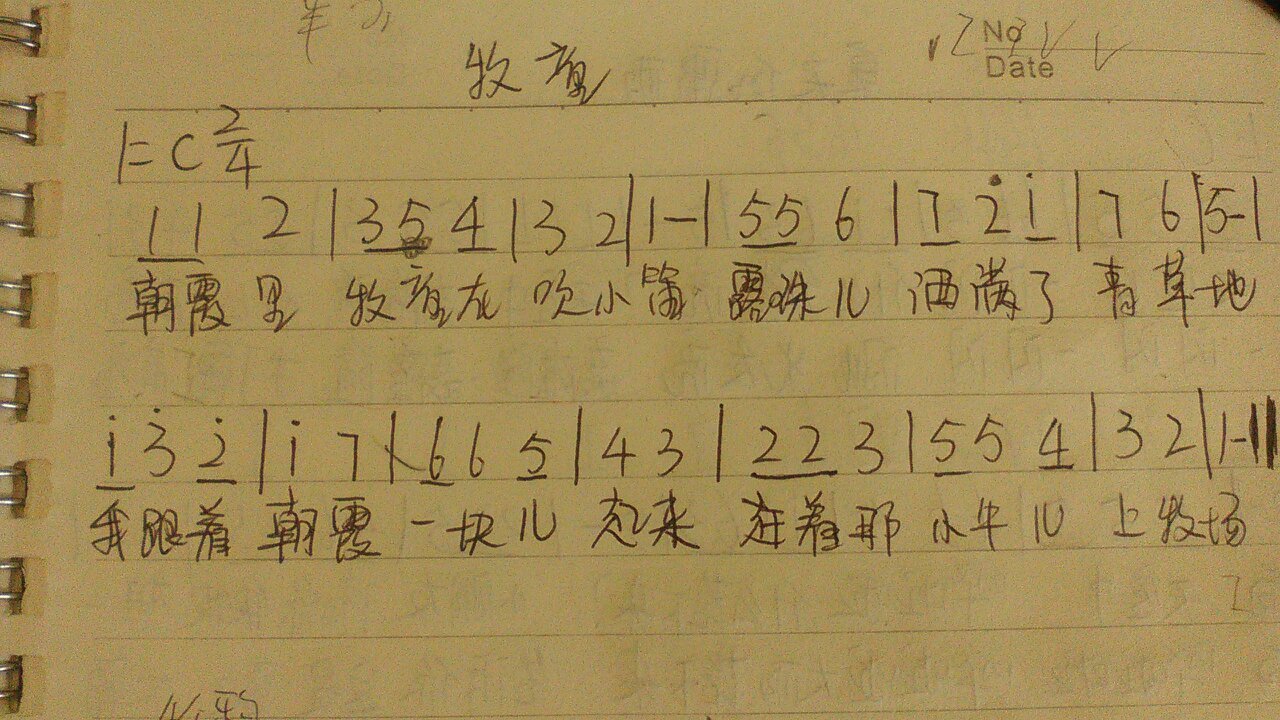 No
Date
牧童
1=C 2/4
1 1 2 | 3 5 4 | 3 2 | 1 - | 5 5 6 | 7 2̇ i | 7 6 | 5 - |
朝霞里 牧童在 吹小笛 露珠儿 洒满了 青草地
i 3̇ 2̇ | i 7 | 6 6 5 | 4 3 | 2 2 3 | 5 5 4 | 3 2 | 1 - ||
我跟着 朝霞 一块儿 起来 赶着那 小牛儿 上牧场